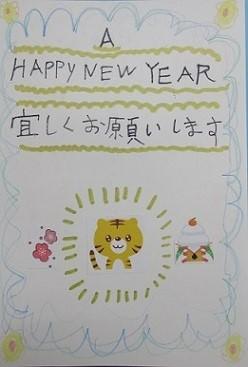 A
HAPPY NEW YEAR
宜しくお願いします